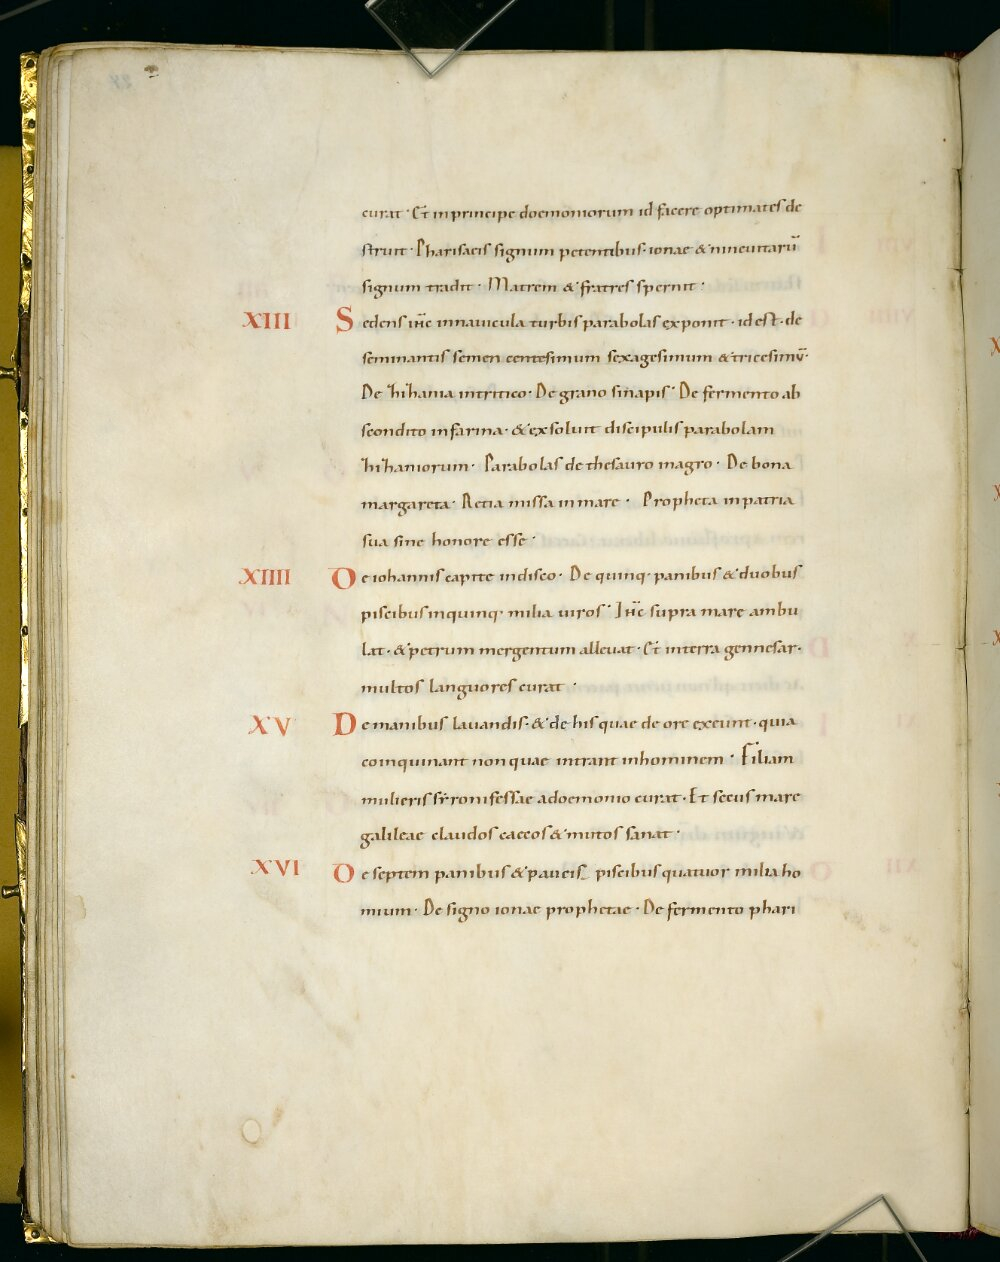 curat · Et in principe doemoniorum id facere optimates de
struit · Pharisaeis signum petentibus · ionae & nineuitarū
signum tradit · Matrem & fratres spernit ·
XIII Sedens ihc in nauicula turbis parabolas exponit · id est · de
seminantis semen centesimum sexagesimum & tricesimū ·
De hihania in tritico · De grano sinapis · De fermento ab
scondito in farina · & exsoluit discipulis parabolam
hihaniorum · Parabolas de thesauro magro · De bona
margareta · Retia missa in mare · Propheta in patria
sua sine honore esse ·
XIIII De iohannis capite in disco · De quinq · panibus & duobus
piscibus in quinq · milia uiros · Ihc supra mare ambu
lat · & petrum mergentum alleuat · Et in terra gennesar ·
multos languores curat ·
XV De manibus lauandis · & de his quae de ore exeunt · quia
coinquinant non quae intrant in hominem · Filiam
mulieris syronifessae a doemonio curat · Et secus mare
galileae claudos caecos & mutos sanat ·
XVI De septem panibus & paucis piscibus quatuor milia ho
mium · De signo ionae prophetae · De fermento phari